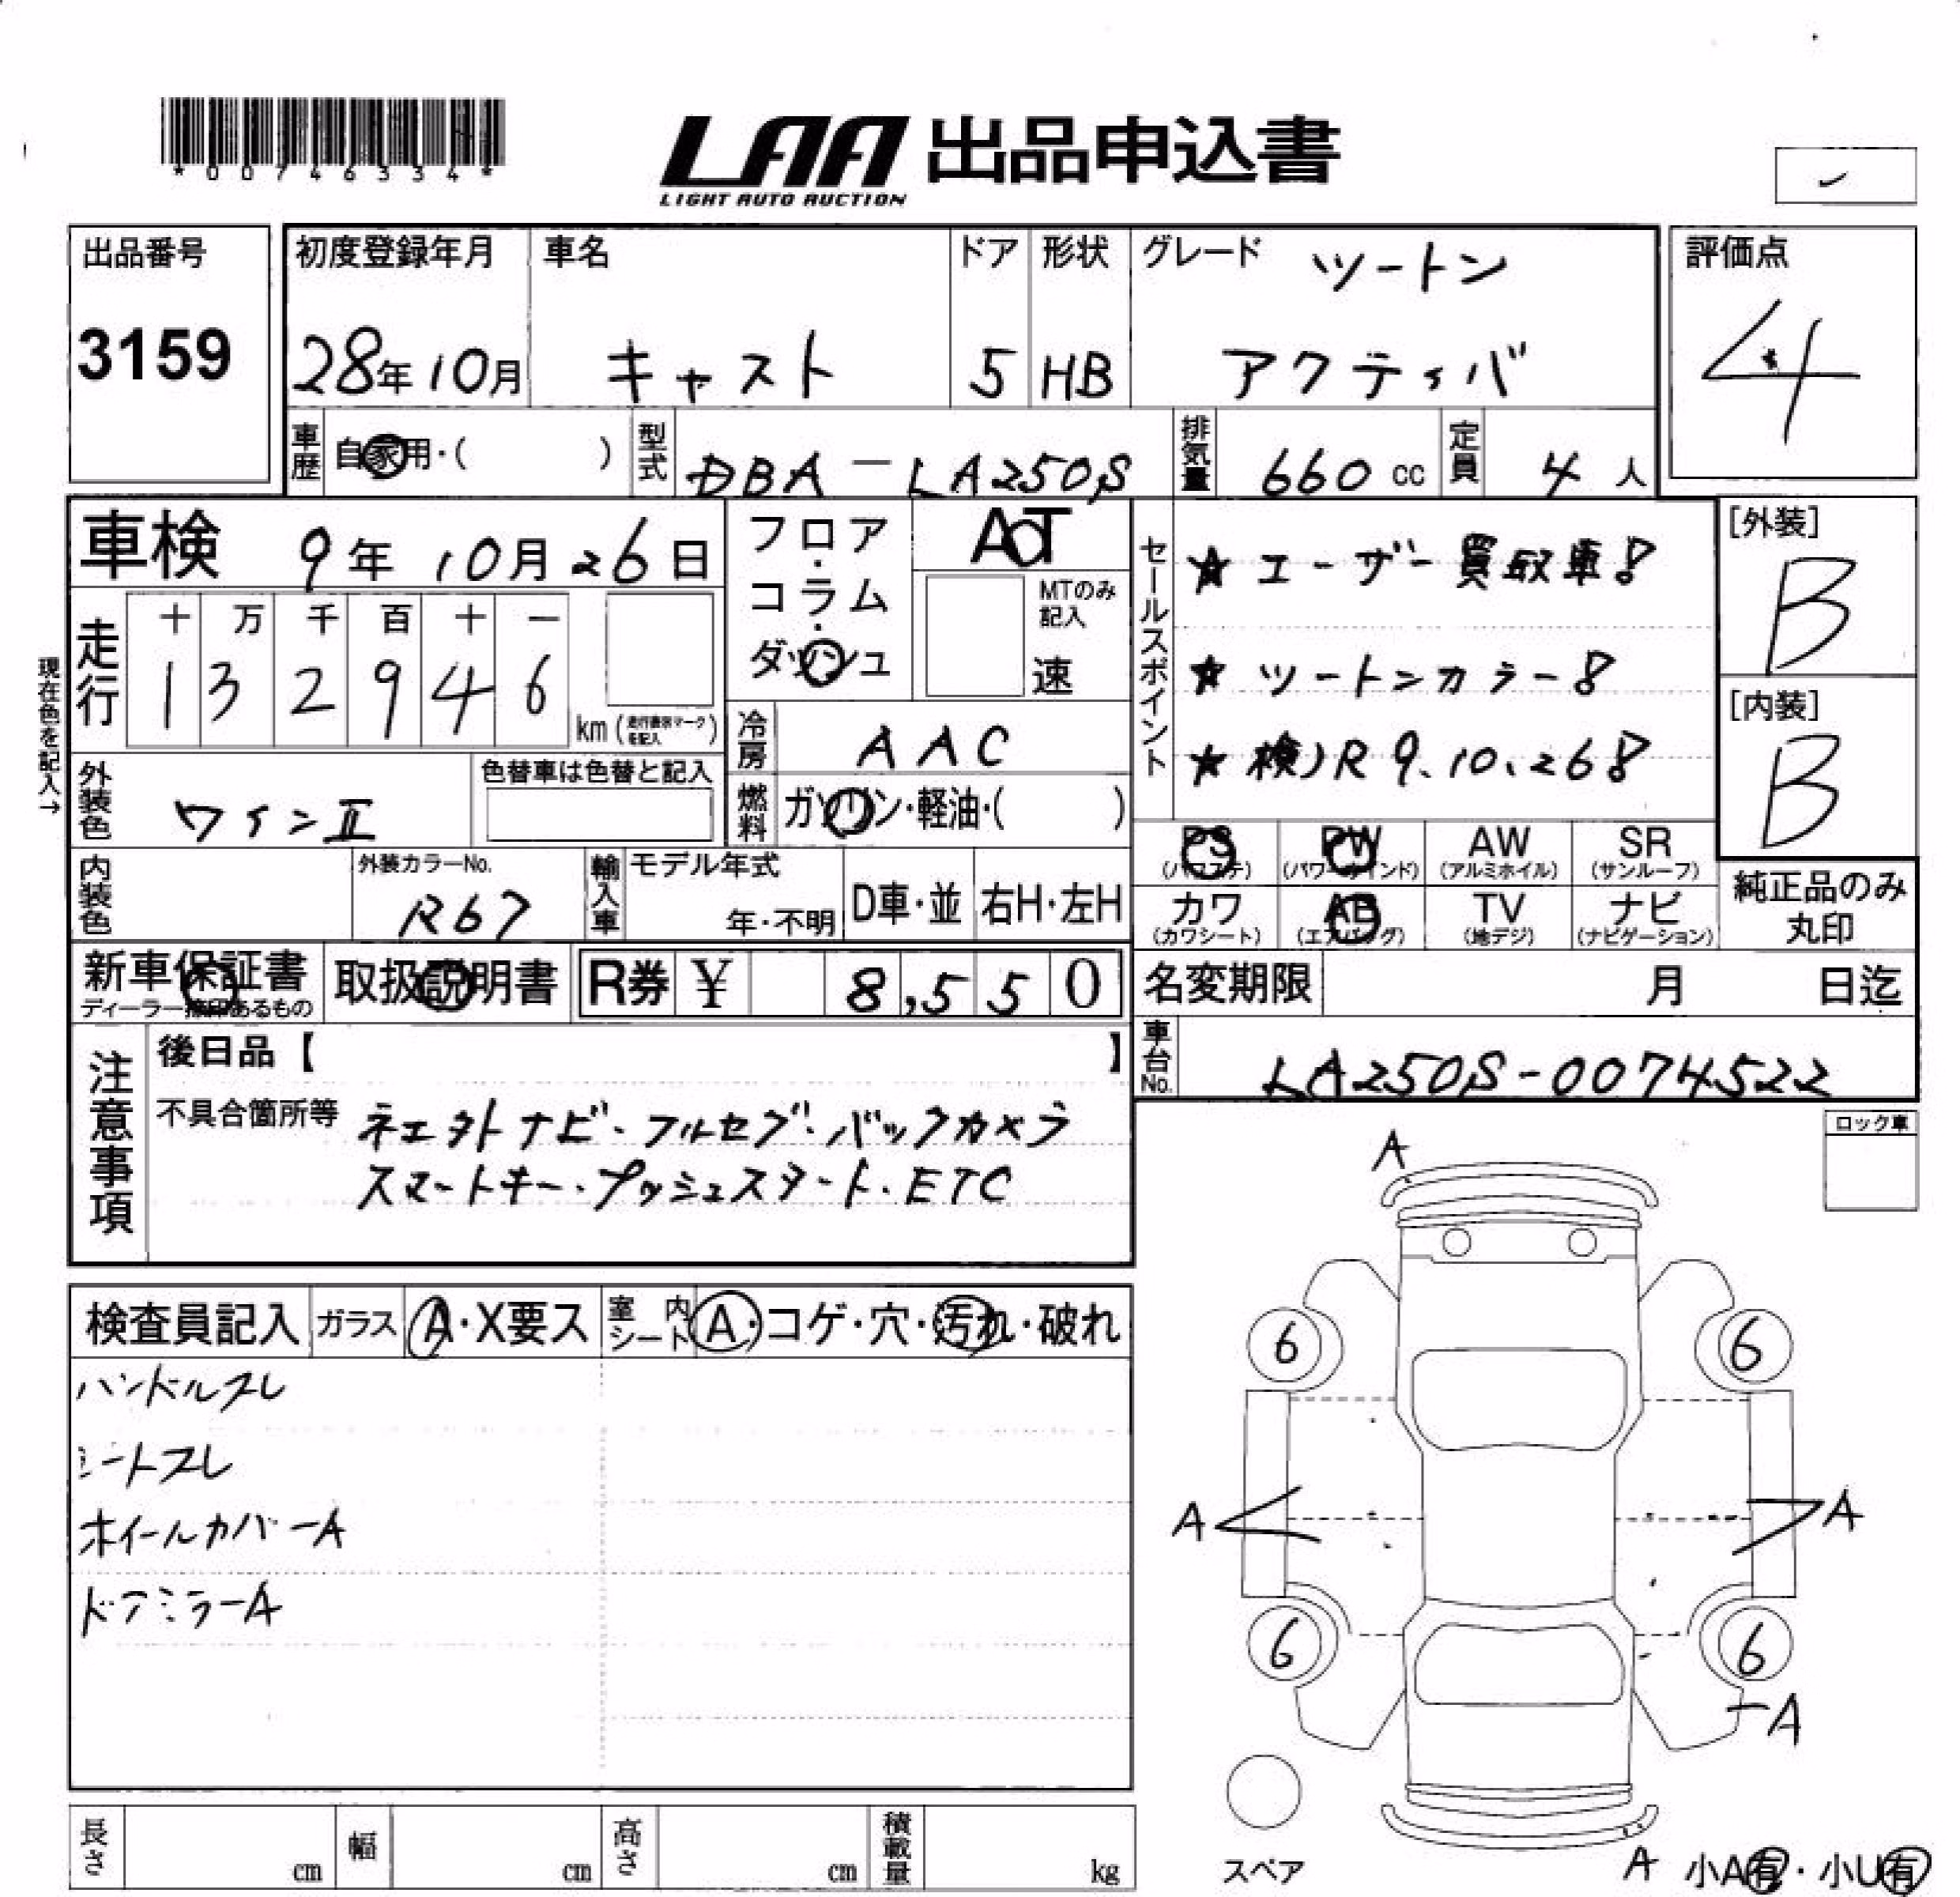 *00746334*
LAA 出品申込書
LIGHT AUTO AUCTION
出品番号 初度登録年月 車名 ドア 形状 グレード ツートン 評価点
3159 28年10月 キャスト 5 HB アクティバ 4
車歴 自家用・( ) 型式 DBA-LA250S 排気量 660 cc 定員 4 人
車検 9年10月26日 フロア・コラム・ダッシュ AT セールスポイント ★ユーザー買取車! [外装]
走行 十 万 千 百 十 一 MTのみ記入 B
1 3 2 9 4 6 km(走行書類マークを記入) 速 ★ツートンカラー! [内装]
現在色を記入→ 冷房 AAC ★検)R9.10.26! B
外装色 ワインⅡ 色替車は色替と記入 燃料 ガソリン・軽油・( )
PS(パワステ) PW(パワーウインド) AW(アルミホイル) SR(サンルーフ)
内装色 外装カラーNo. R67 輸入車 モデル年式 年・不明 D車・並 右H・左H
カワ(カワシート) AB(エアバッグ) TV(地デジ) ナビ(ナビゲーション) 純正品のみ丸印
新車保証書 取扱説明書 R券 ¥ 8,550 名変期限 月 日迄
ディーラー捺印あるもの
注意事項 後日品【 】 車台No. LA250S-0074522
不具合箇所等 ネエクトナビ・フルセグ・バックカメラ
スマートキー・プッシュスタート・ETC
ロック車
検査員記入 ガラス A・X要ス 室内シート A・コゲ・穴・汚れ・破れ
ハンドルスレ
シートスレ
ホイールカバーA
ドアミラーA
A
6 6
A A
6 6
A
スペア A 小A有・小U有
長さ cm 幅 cm 高さ cm 積載量 kg